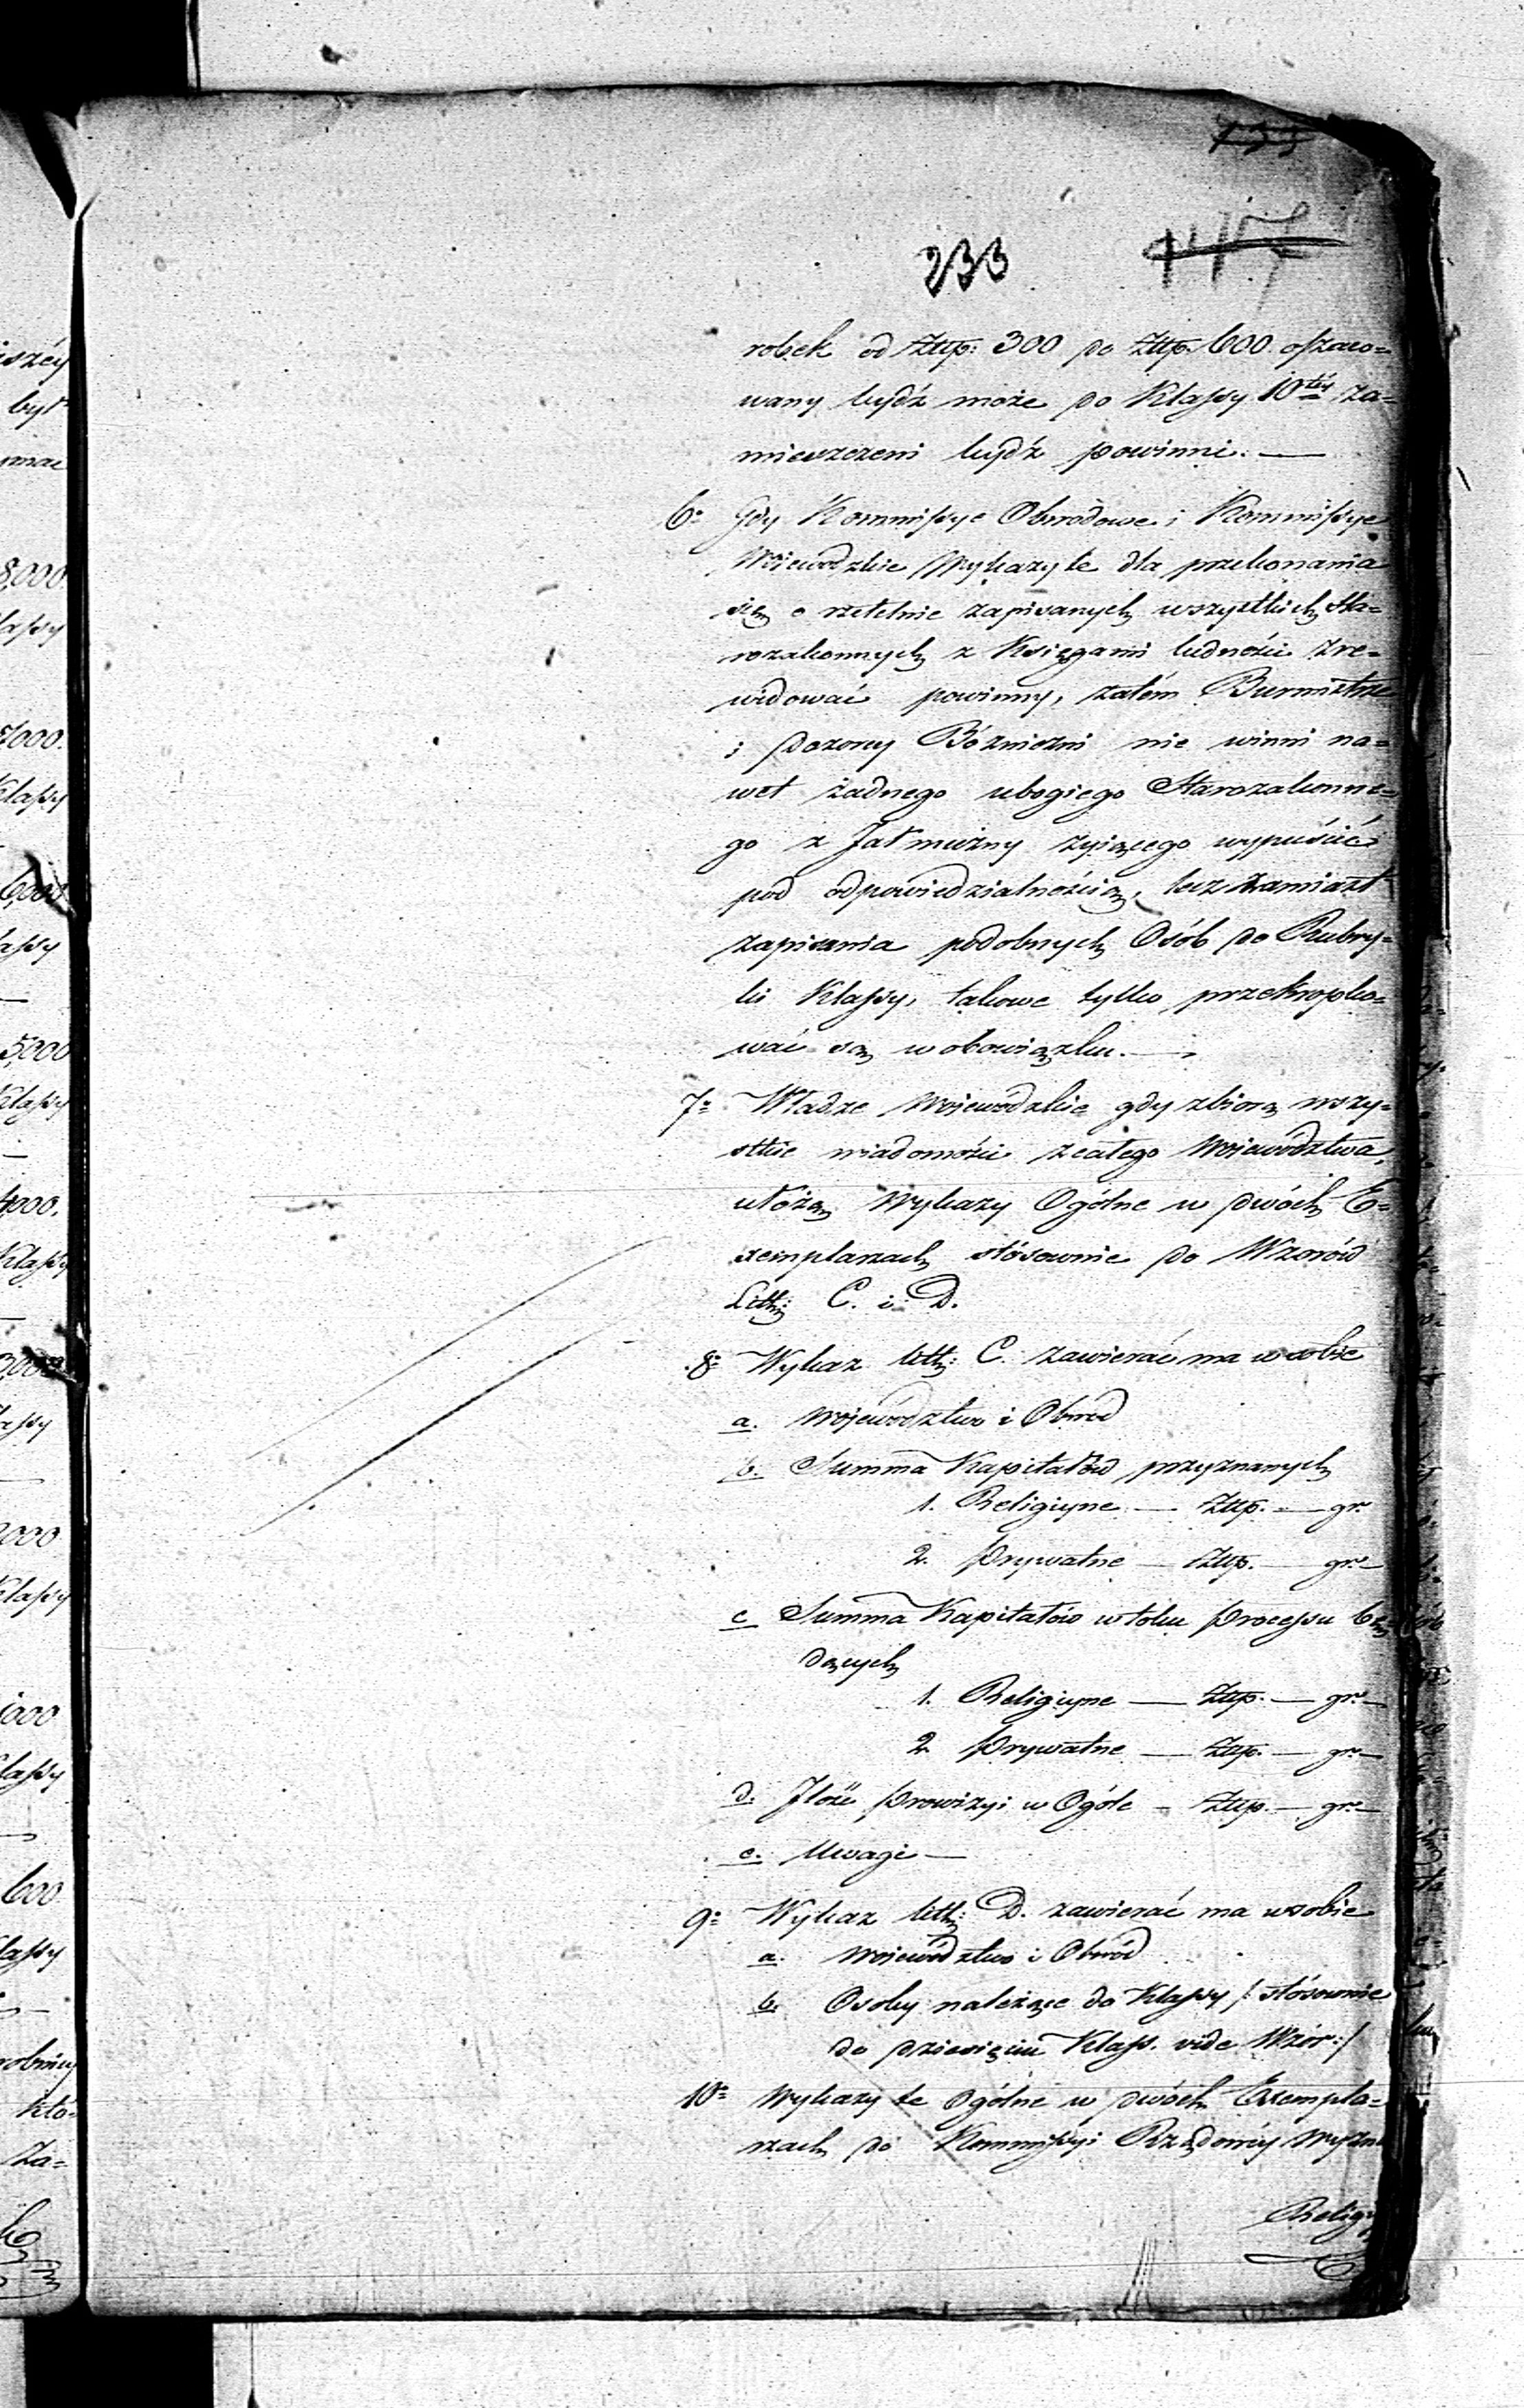 233
robek od Złłp: 300 do Złłp. 600. oszaco=
wany bydź może do Klassy 10téy za=
mieszczeni bydź powinni. —
6o Gdy Kommissye Obwodowe i Kommissye
Woiewodzkie Wykazy te dla przekonania
się o rzetelnie zapisanych wszystkich Sta=
rozakonnych z Księgami ludności zre=
widować powinny, zatém Burmistrze
i Dozory Bóżniczni nie winni na=
wet żadnego ubogiego Starozakonne=
go z Jałmużny żyiącego wypuścić
pod odpowiedzialnością, lecz zamiast
zapisania podobnych Osób do Rubry=
ki Klassy, takowe tylko przekropko=
wać są w obowiązku. —
7o Władze Wojewódzkie gdy zbiorą wszy=
stkie wiadomości z całego Województwa,
ułożą Wykazy Ogólne w dwóch E=
xemplarzach stósownie do Wzorów
Litt: C. i D.
8o Wykaz litt: C. zawierać ma w sobie
a. Województwo i Obwód
b. Summa Kapitałów przyznanych
1. Religiyne — Złłp. — gr.
2. Prywatne — Złłp. — gr. —
c Summa Kapitałów w toku Processu bę=
dących
1. Religiyne — Złłp. — gr. —
2. Prywatne — Złłp. — gr. —
d. Ilość Prowizyi w Ogóle — Złłp. — gr. —
e. Uwagi —
9o Wykaz litt: D. zawierać ma w sobie
a. Województwo i Obwód
b. Osoby należące do Klassy /: stósownie
do dziesięciu Klass. vide Wzór :/
10o Wykazy te Ogólne w dwóch Exempla=
rzach do Kommissyi Rządowéy Wyzn
Religi